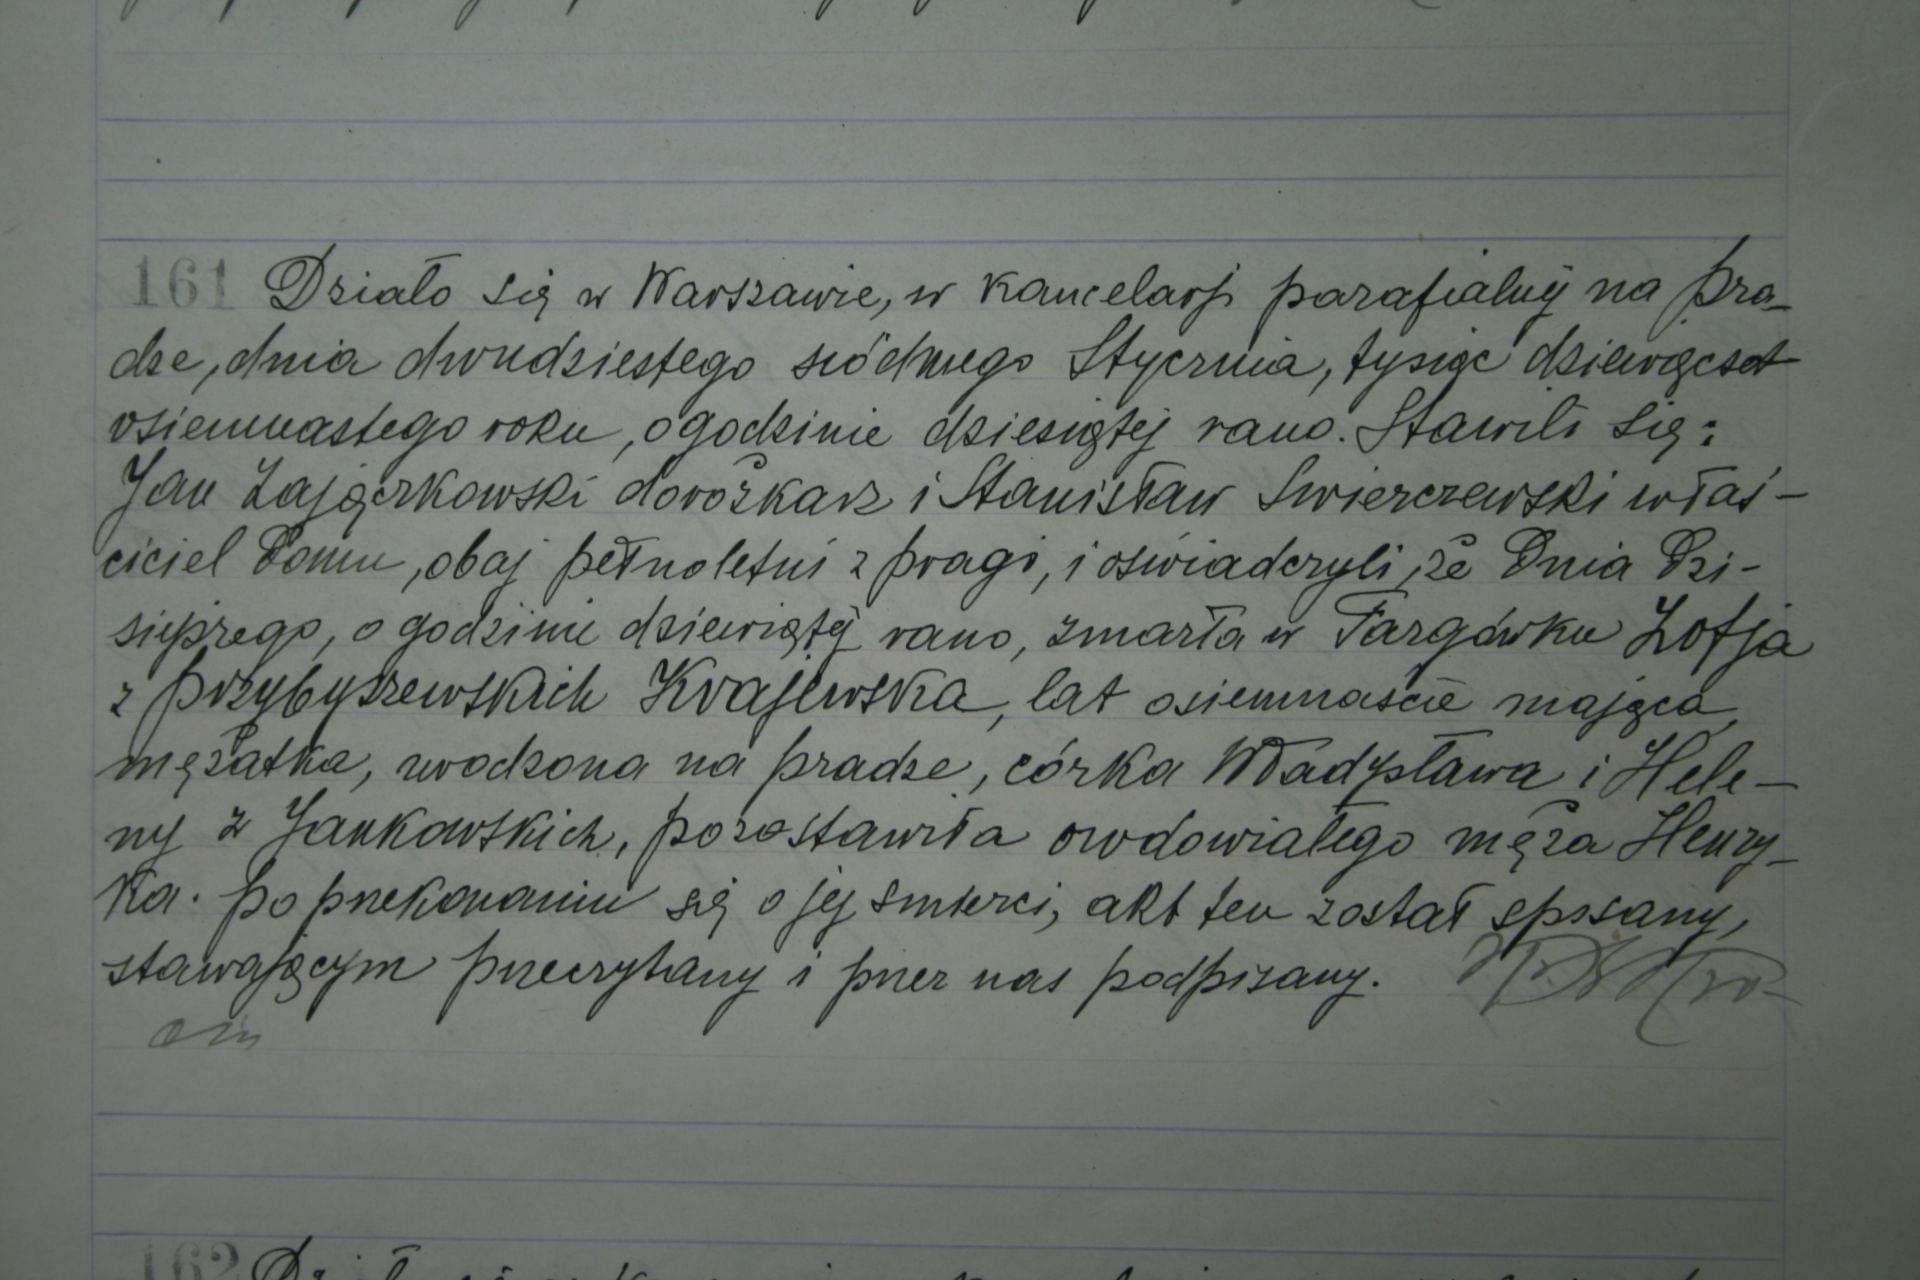 161 Działo się w Warszawie, w kancelarji parafialnej na Pra-
dze, dnia dwudziestego siódmego Stycznia, tysiąc dziewięćset
osiemnastego roku, o godzinie dziesiątej rano. Stawili się:
Jan Zajączkowski dorożkarz i Stanisław Świerczewski właś-
ciciel domu, obaj pełnoletni z Pragi, i oświadczyli, że dnia dzi-
siejszego, o godzinie dziewiątej rano, zmarła w Targówku Zofja
z Przybyszewskich Krajewska, lat osiemnaście mająca,
mężatka, urodzona na Pradze, córka Władysława i Hele-
ny z Jankowskich, pozostawiła owdowiałego męża Henry-
ka. Po przekonaniu się o jej śmierci, akt ten został spisany,
stawającym przeczytany i przez nas podpisany.
162 Działo się w